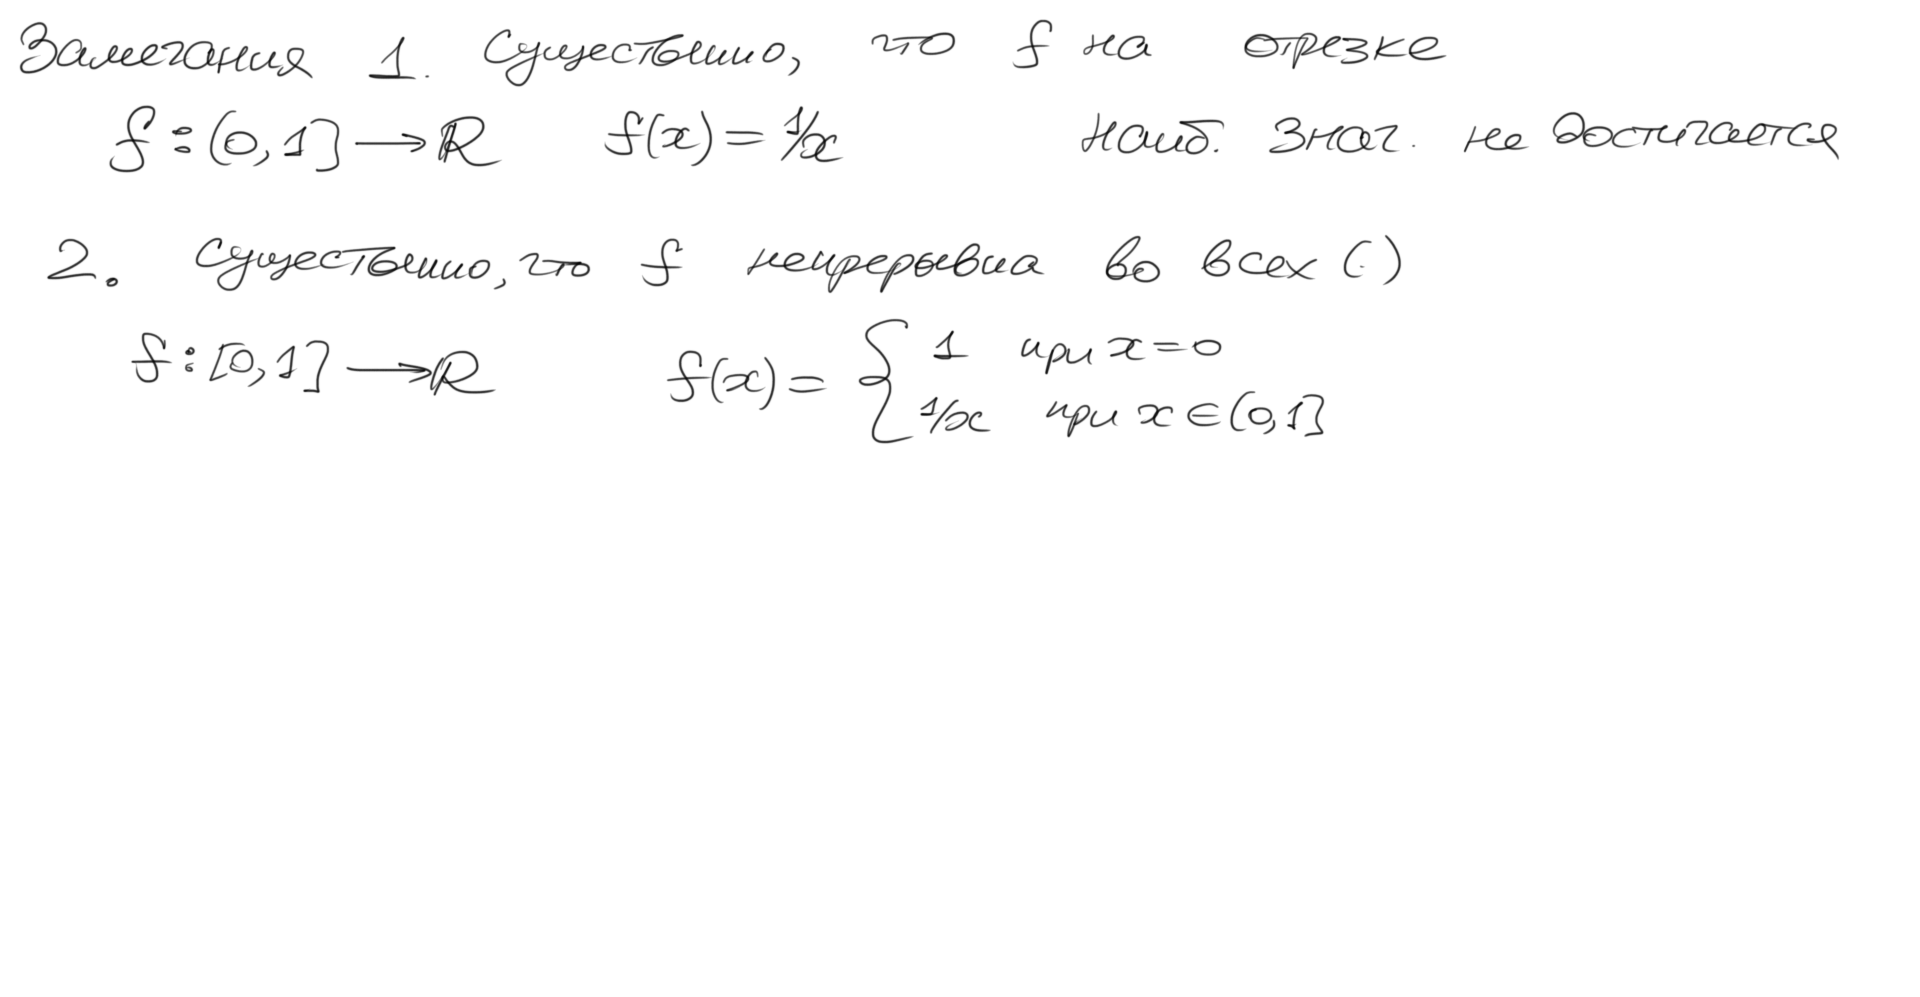 Замечания 1. Существенно, что f на отрезке
f : (0,1] → ℝ f(x) = 1/x наиб. знач. не достигается
2. Существенно, что f непрерывна во всех (·)
f : [0,1] → ℝ f(x) = { 1 при x = 0
1/x при x ∈ (0,1]